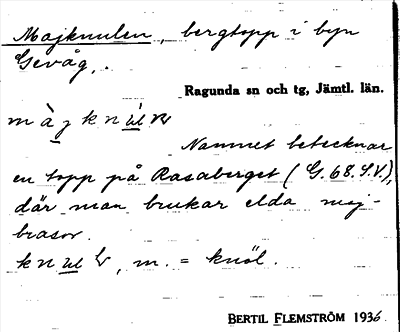 Majknulen, bergtopp i byn
Gevåg,.
Ragunda sn och tg, Jämtl. län.
Namnet betecknar
en topp på Rasaberget (G.68.S.V.),
där man brukar elda maj-
brasor.
m. = knöl.
BERTIL FLEMSTRÖM 1936.